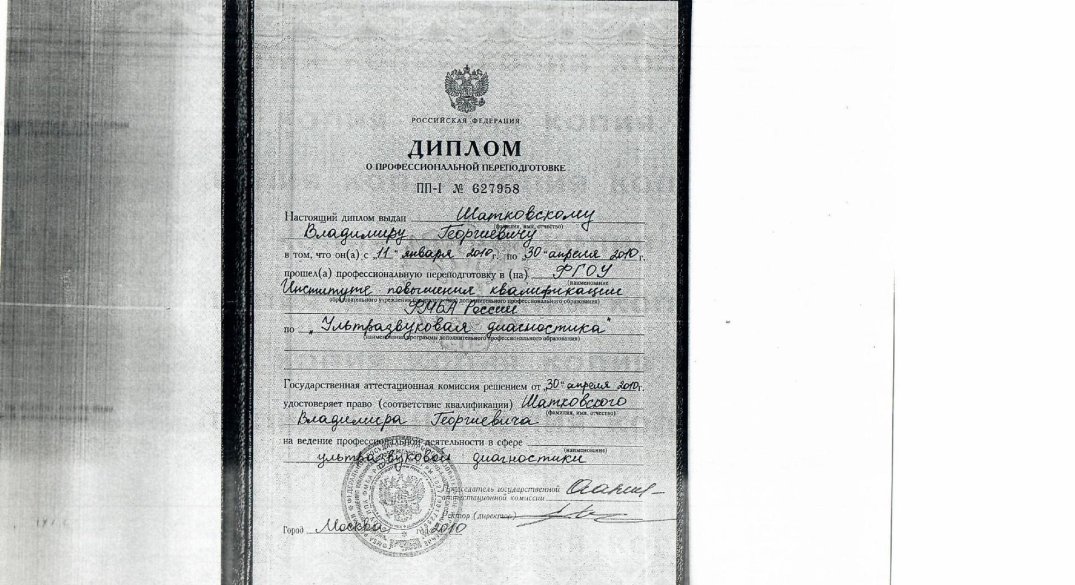 РОССИЙСКАЯ ФЕДЕРАЦИЯ
ДИПЛОМ
О ПРОФЕССИОНАЛЬНОЙ ПЕРЕПОДГОТОВКЕ
ПП-I № 627958
Настоящий диплом выдан Шатковскому
(фамилия, имя, отчество)
Владимиру Георгиевичу
в том, что он(а) с „11“ января 2010г. по „30“ апреля 2010г.
прошел(а) профессиональную переподготовку в (на) ФГОУ
(наименование
Институте повышения квалификации
образовательного учреждения дополнительного профессионального образования)
ФМБА России
по „Ультразвуковая диагностика“
(наименование программы дополнительного профессионального образования)
Государственная аттестационная комиссия решением от „30“ апреля 2010г.
удостоверяет право (соответствие квалификации) Шатковского
(фамилия, имя, отчество)
Владимира Георгиевича
на ведение профессиональной деятельности в сфере
(наименование)
ультразвуковой диагностики
Председатель государственной
аттестационной комиссии
Ректор (директор)
Город Москва год 2010